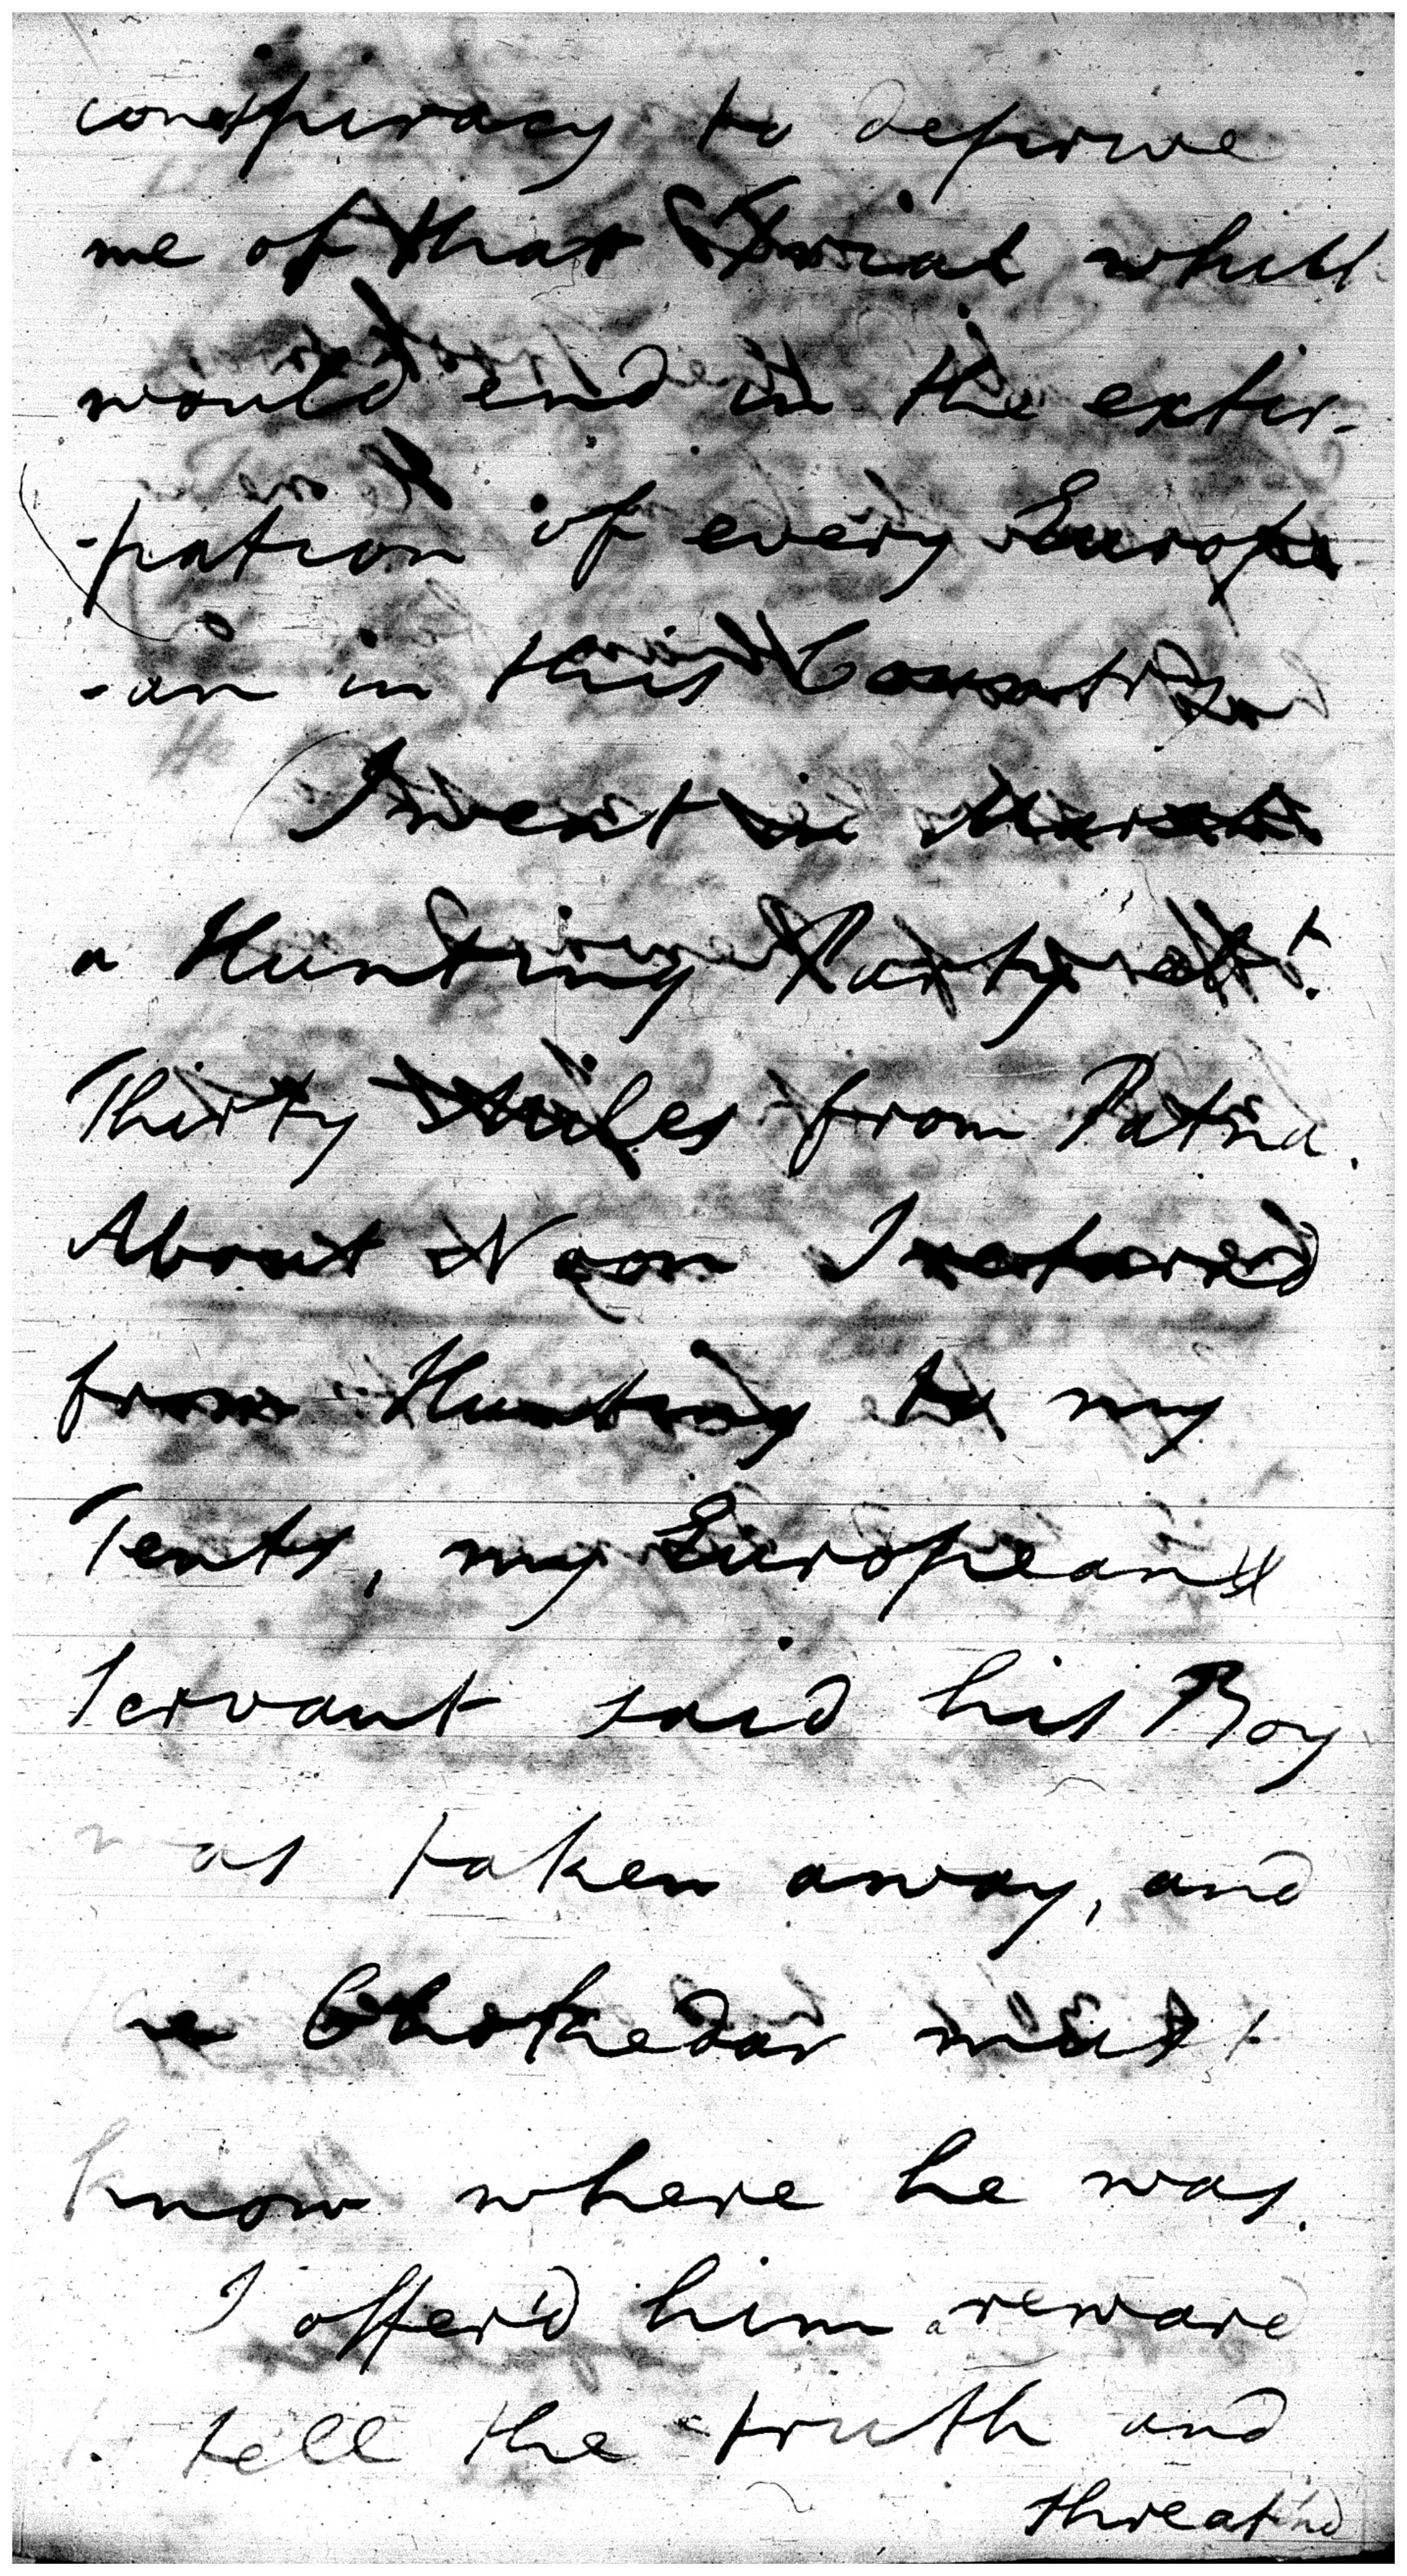 conspiracy to deprive
me of that Trial which
would end in the extir-
-pation of every Europe
-an in this Country
I went in March
a Hunting Party at
Thirty Miles from Patna.
About Noon I retured
from Hunting to my
Tents, my European
Servant said his Boy
was taken away, and
the Chokedar must
know where he was.
I offer'd him a reward
tell the truth and
threat'nd